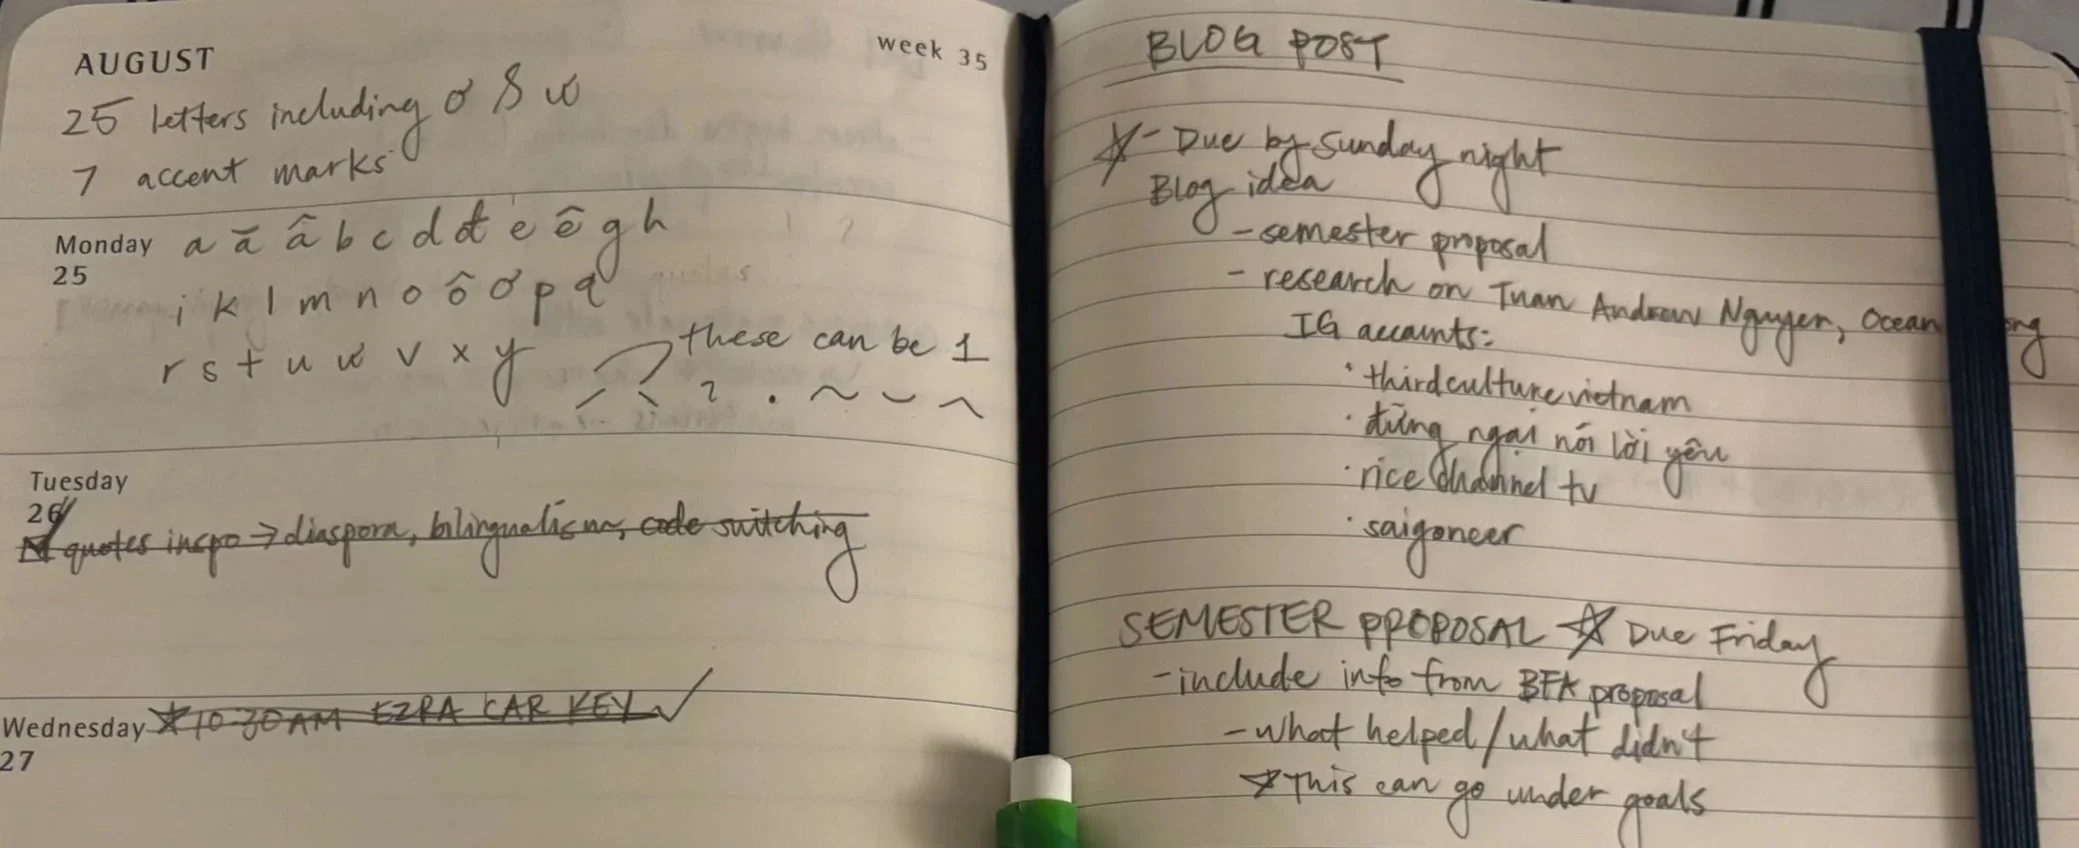 AUGUST
week 35
25 letters including ơ & ư
7 accent marks
Monday
25
a ă â b c d đ e ê g h
i k l m n o ô ơ p q
r s t u ư v x y
these can be 1
/ \ ? . ~ ⌣ ^
Tuesday
26
quotes inspo → diaspora, bilingualism, code switching
Wednesday
27
☆ 10:30AM EZRA CAR KEY ✓
BLOG POST
☆ - Due by Sunday night
Blog idea
- semester proposal
- research on Tuan Andrew Nguyen, Ocean
IG accounts:
· thirdculturevietnam
· đừng ngại nói lời yêu
· rice channel tv
· saigoneer
SEMESTER PROPOSAL ☆ Due Friday
- include info from BFA proposal
- what helped/what didn't
☆ This can go under goals